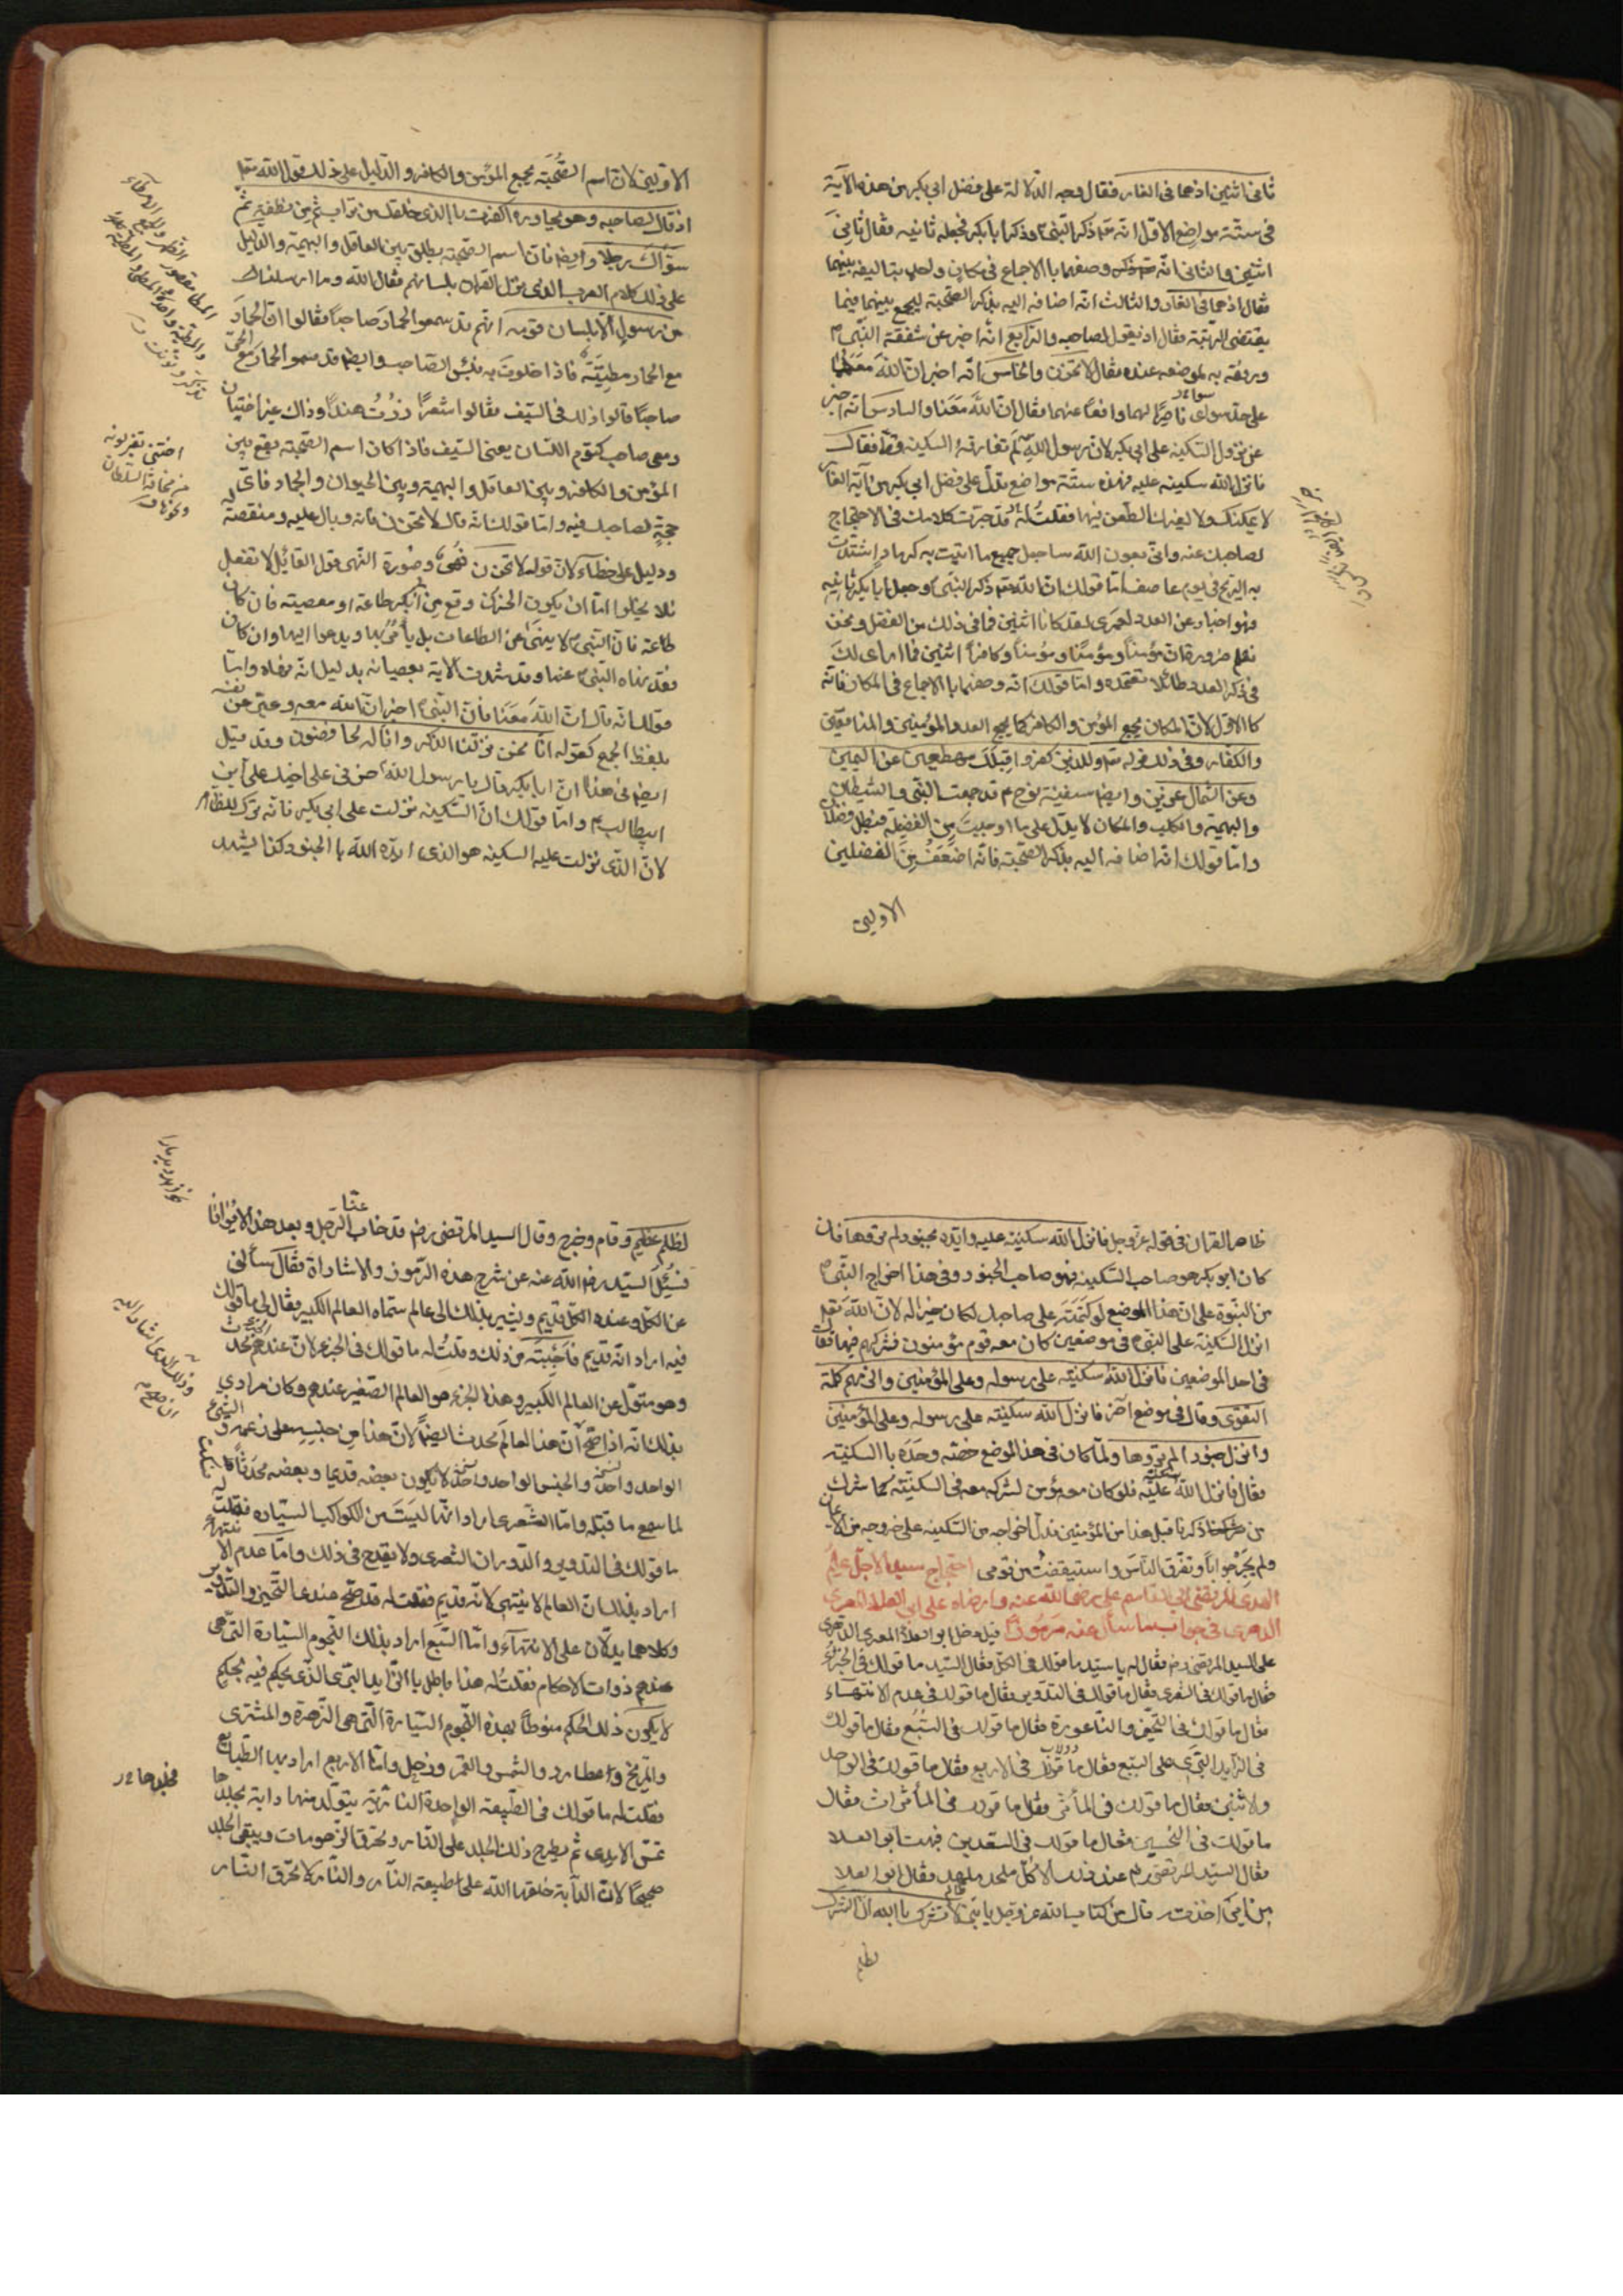 ثانى اثنين اذ هما فى الغار فقال وجه الدلالة على فضل ابى بكر من هذه الآية
فى ستة مواضع الاول انه تع ذكر النبى ص وذكر ابا بكر فجعله ثانيه فقال ثانى
اثنين والثانى انه وصفهما بالاجتماع فى مكان واحد بتاليفه بينهما
فقال اذ هما فى الغار والثالث انه اضافه اليه بذكر الصحبة ليجمع بينهما فيما
يقتضى الرتبة فقال اذ يقول لصاحبه والرابع انه اخبر عن شفقة النبى ص
ورفقه به لموضعه عنده فقال لا تحزن والخامس انه اخبر ان الله معهما
على حد سوى ناصرا لهما ودافعا عنهما فقال ان الله معنا والسادس انه اخبر
عن نزول السكينه على ابى بكر لان رسول الله لم تفارقه السكينه قط فقال
فانزل الله سكينه عليه فهذه ستة مواضع تدل على فضل ابى بكر من آية الغار
لا يمكنك ولا لغيرك الطعن فيها فقلت له قد حررت كلامك فى الاحتجاج
لصاحبك عنه وانى بعون الله ساجعل جميع ما اتيت به كرماد اشتدت
به الريح فى يوم عاصف اما قولك ان الله تع ذكر النبى ص وجعل ابا بكر ثانيه
فهو اخبار عن العدد لعمرى لقد كانا اثنين فما فى ذلك من الفضل ونحن
نعلم ضرورة ان مؤمنا ومؤمنا ومؤمنا وكافرا اثنين فما ارى لك
فى ذكر العدد طائلا تعتمده واما قولك انه وصفهما بالاجتماع فى المكان فانه
كالاول لان المكان يجمع المؤمن والكافر كما يجمع العدد المؤمنين والمنافقين
والكفار وفى ذلك قوله تع وللذين كفروا قبلك مهطعين عن اليمين
وعن الشمال عزين وايضا سفينة نوح ع قد جمعت النبى والشيطان
والبهيمة والكلب والمكان لا يدل على ما اوجبت من الفضيلة فبطل فضلان
واما قولك انه اضافه اليه بذكر الصحبة فانه اضعف من الفضلين
الاولين
الاولين لان اسم الصحبة يجمع المؤمن والكافر والدليل على ذلك قول الله تعا
اذ قال لصاحبه وهو يحاوره اكفرت بالذى خلقك من تراب ثم من نطفة ثم
سواك رجلا وايضا فان اسم الصحبة يطلق بين العاقل والبهيمة والدليل
على ذلك كلام العرب الذى نزل القران بلسانهم فقال الله وما ارسلناك
من رسول الا بلسان قومه انهم قد سموا الحمار صاحبا فقالوا ان الحمار
مع الحمار مطية فاذا خلوت به فبئس الصاحب وايضا قد سموا الجماد مع الحى
صاحبا قالوا ذلك فى السيف فقالوا شعرا زرت هندا وذاك غير اختيان
ومعى صاحب كتوم اللسان يعنى السيف فاذا كان اسم الصحبة يقع بين
المؤمن والكافر وبين العاقل والبهيمة وبين الحيوان والجماد فاى
حجة لصاحبك فيه واما قولك انه قال لا تحزن فانه وبال عليه ومنقصة له
ودليل على خطائه لان قوله لا تحزن نهى وصورة النهى قول القائل لا تفعل
فلا يخلوا اما ان يكون الحزن وقع من ابى بكر طاعة او معصية فان كان
طاعة فان النبى ص لا ينهى عن الطاعات بل يأمر بها ويدعوا اليها وان كان
فقد نهاه النبى ص عنها وقد شهدت الآية بعصيانه بدليل انه نهاه واما
قولك انه قال ان الله معنا فان النبى ص اخبر ان الله معه وعبر عن نفسه
بلفظ الجمع كقوله انا نحن نزلنا الذكر وانا له لحافظون وقد قيل
ايضا فى هذا ان ابا بكر قال يا رسول الله حزنى على اخيك على ابن
ابيطالب ع واما قولك ان السكينه نزلت على ابى بكر فانه ترك للظاهر
لان الذى نزلت عليه السكينه هو الذى ايده الله بالجنود كذا يشهد
ظاهر القران فى قوله عز وجل فانزل الله سكينته عليه وايده بجنود لم تروها فان
كان ابو بكر هو صاحب السكينه فهو صاحب الجنود وفى هذا اخراج النبى ص
من النبوة على ان هذا الموضع لو كتمته على صاحبك لكان خيرا له لان الله تعا
انزل السكينة على النبى ص فى موضعين كان معه قوم مؤمنون فشركهم فيها فقال
فى احد الموضعين فانزل الله سكينته على رسوله وعلى المؤمنين والزمهم كلمة
التقوى وقال فى موضع آخر فانزل الله سكينته على رسوله وعلى المؤمنين
وانزل جنودا لم تروها ولما كان فى هذا الموضع خصه وحده بالسكينة
فقال فانزل الله سكينته عليه فلو كان معه مؤمن لشركه معه فى السكينة كما شرك
من ذكرنا قبل هذا من المؤمنين فدل اخراجه من السكينه على خروجه من الايمان
ولم يحر جوابا وتفرق الناس واستيقظت من نومى احتجاج سيد الاجل علم
الهدى المرتضى ابى القاسم على رضى الله عنه وارضاه على ابى العلا المعرى
الدهرى فى جواب ما سأل عنه مرموزا قيل دخل ابو العلاء المعرى الدهرى
على السيد المرتضى رض فقال له يا سيد ما قولك فى الكل فقال السيد ما قولك فى الجزء
فقال ما قولك فى الشعرى فقال ما قولك فى التدوير فقال ما قولك فى عدم الانتهاء
فقال ما قولك فى التحيز والناعورة فقال ما قولك فى السبع فقال ما قولك
فى الزايد البرى على السبع فقال ما قولك فى الاربع فقال ما قولك فى الواحد
والاثنين فقال ما قولك فى المؤثر فقال ما قولك فى المأثرات فقال
ما قولك فى النحسين فقال ما قولك فى السعدين فبهت ابو العلا
فقال السيد المرتضى رض عند ذلك الا كل ملحد ملهد فقال ابو العلا
من اين اخذته قال من كتاب الله عز وجل يا بنى لا تشرك بالله ان الشرك
لظلم
لظلم عظيم وقام وخرج وقال السيد المرتضى رض قد غاب عنا الرجل وبعد هذا لا يرانا
فسئل السيد رض الله عنه عن شرح هذه الرموز والاشارات فقال سألنى
عن الكل وعنده الكل قديم ويشير بذلك الى عالم سماه العالم الكبير فقال لى ما قولك
فيه اراد انه قديم فاجبته عن ذلك وقلت له ما قولك فى الجزء لان عندهم الجزء محدث
وهو متولد عن العالم الكبير وهذا الجزء هو العالم الصغير عندهم وكان مرادى
بذلك انه اذا صح ان هذا العالم محدث ايضا لان هذا من جنسه على زعمه والشئ
الواحد والجنس الواحد لا يكون بعضه قديما وبعضه محدثا فسكت
لما سمع ما قبله واما الشعرى اراد انها ليست من الكواكب السيارة فقلت له
ما قولك فى التدوير اردت والدوران الشعرى ولا يقدح فى ذلك واما عدم الانتهاء
اراد بذلك ان العالم لا ينتهى لانه قديم فقلت له قد صح عندى التحيز والتدوير
وكلاهما يدلان على الانتهاء واما السبع اراد بذلك النجوم السيارة التى هى
عندهم ذوات الاحكام فقلت له هذا باطل بالزايد البرى الذى يحكم فيه بحكم
لا يكون ذلك الحكم منوطا بهذه النجوم السيارة التى هى الزهرة والمشترى
والمريخ وعطارد والشمس والقمر وزحل واما الاربع اراد بها الطبايع
فقلت له ما قولك فى الطبيعة الواحدة النارية يتولد منها دابة بجلدها
تمس الايدى ثم يطرح ذلك الجلد على النار وتحرق الزهومات ويبقى الجلد
صحيحا لان الدابة خلقها الله على طبيعة النار والنار لا تحرق النار